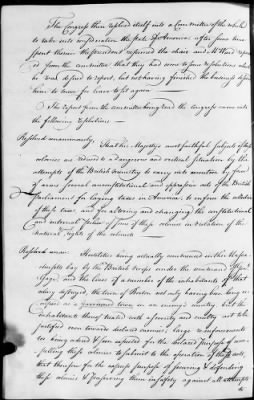 The Congress then resolved itself into a Committee of the whole
to take into consideration the state of America after some time
spent therein the President resumed the chair and Mr Ward report
ed from the committee that they had come to some resolutions which
he was desired to report, but not having finished the business desired
him to move for leave to sit again
The report from the committee being read the congress came into
the following resolutions
Resolved unanimously, That his Majesty's most faithful subjects of these
colonies are reduced to a dangerous and critical situation by the
attempts of the British ministry to carry into execution by force
of arms several unconstitutional and oppressive acts of the British
Parliament for laying taxes in America; to enforce the collection
of these taxes and for altering and changing the constitution
and internal police of some of these colonies in violation of the
natural rights of the colonists
Resolved unan Hostilities being actually commenced in the Massa
chusetts bay by the British troops under the command of Genl
Gage, and the lives of a number of the inhabitants of that
colony destroyed, the town of Boston not only having been long oc
cupied as a garrisoned town in an enemy's country, but the
inhabitants thereof treated with a severity and cruelty not to be
justified even towards declared enemies; large re-inforcements
too being ordered & soon expected for the declared purpose of com
pelling these colonies to submit to the operation of the acts,
that therefore for the express purpose of securing & defending
these colonies & preserving them in safety against all attempts
to